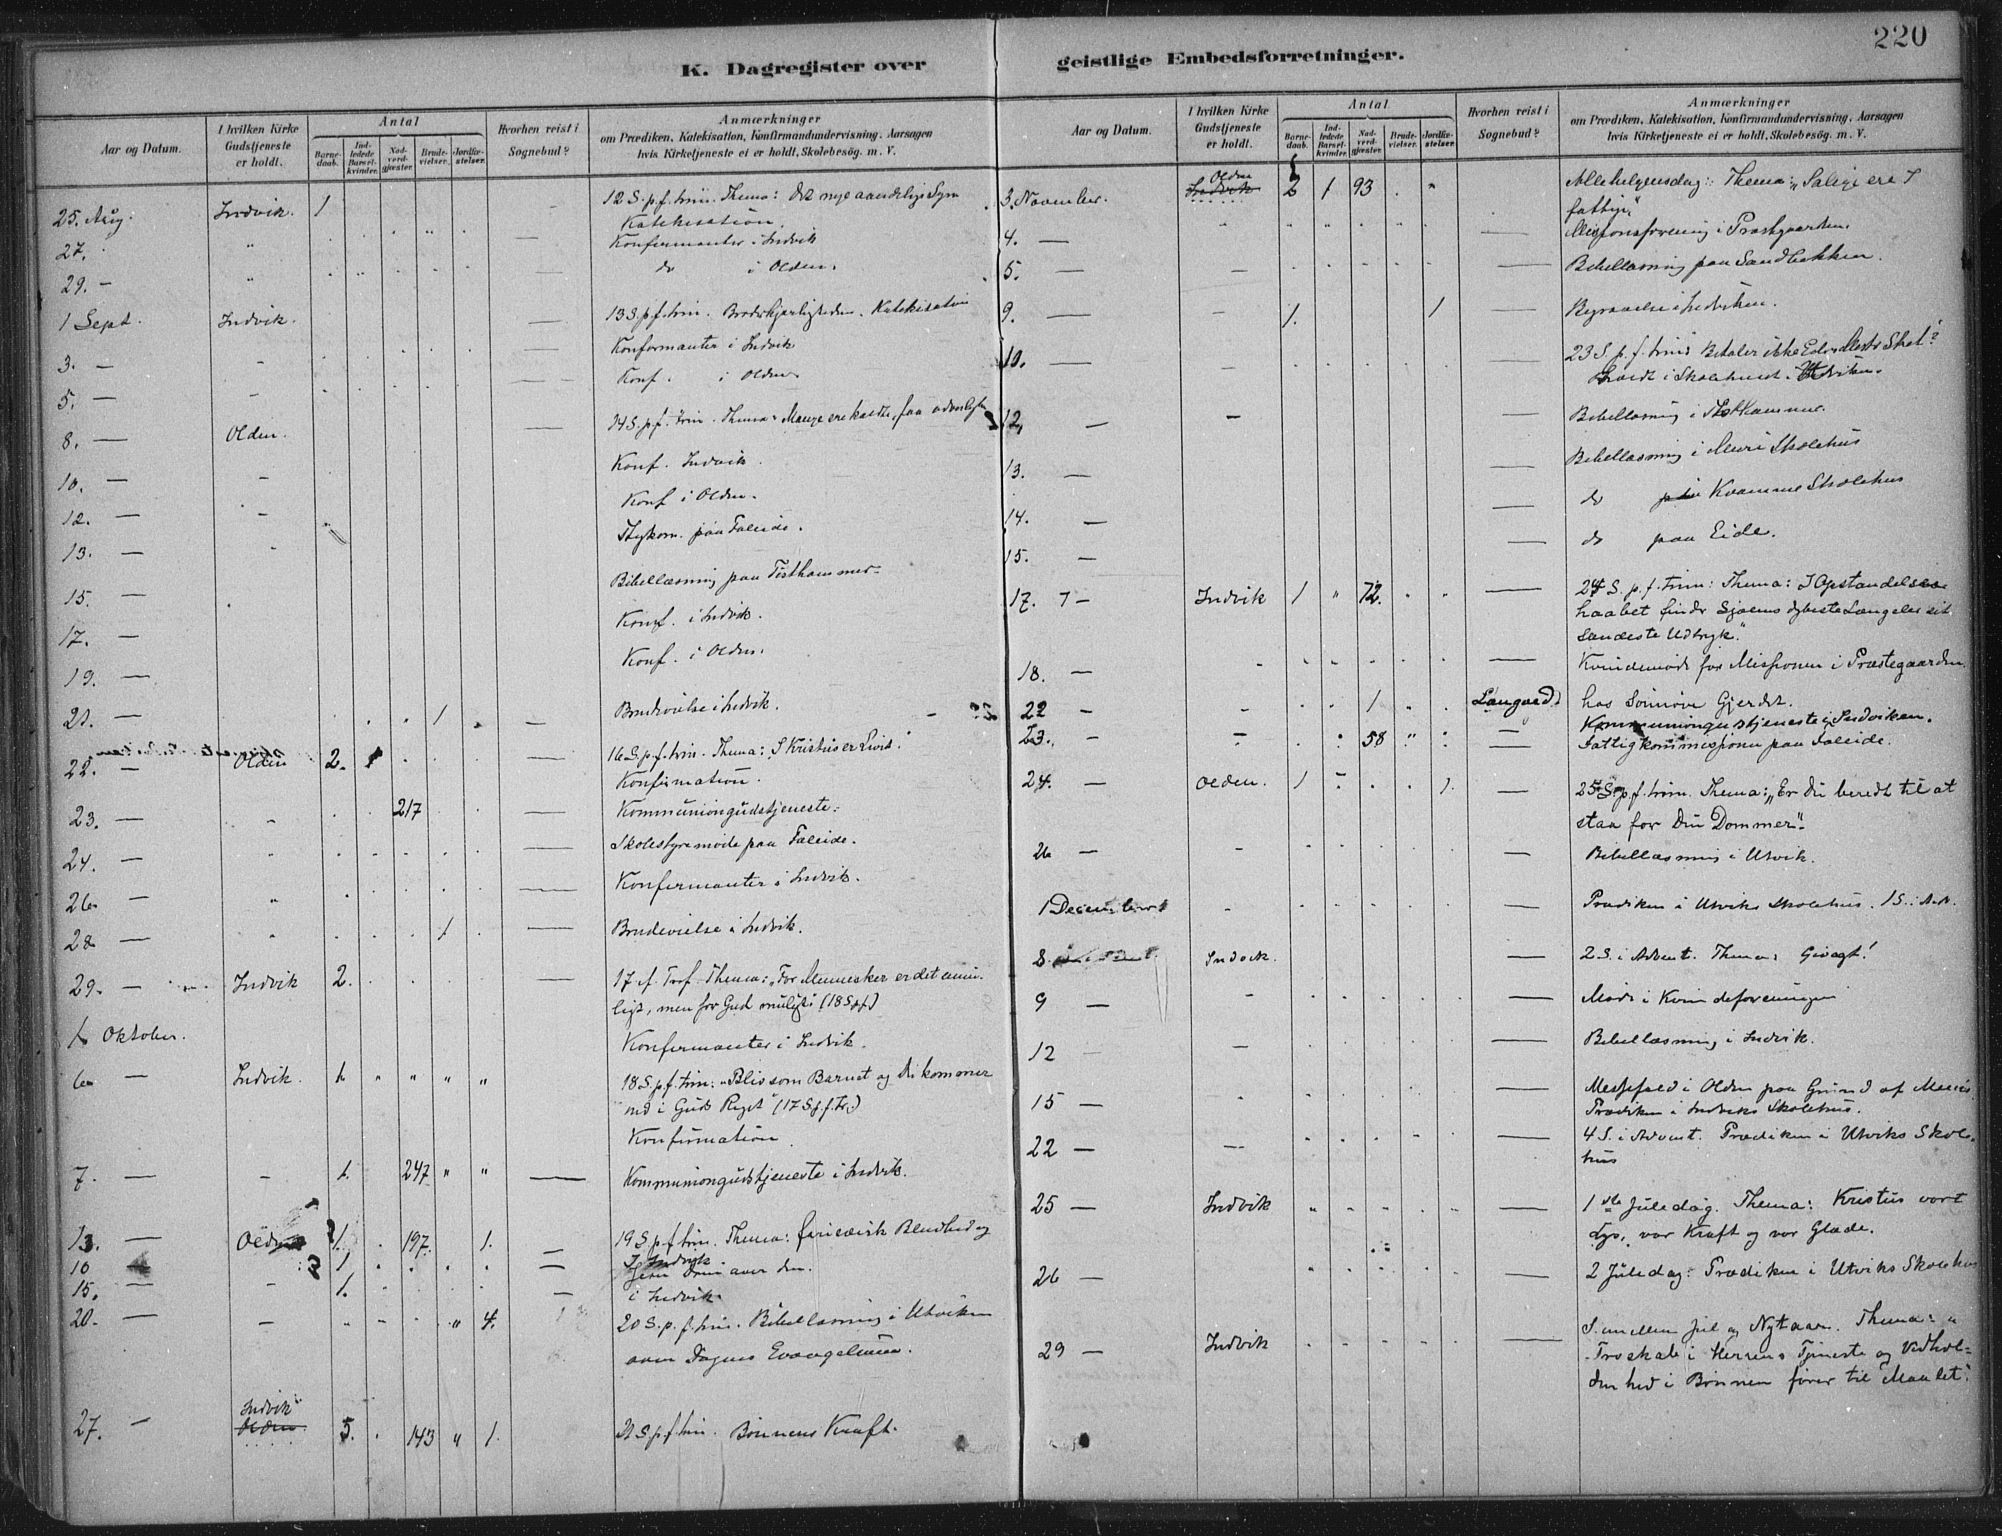 220
K. Dagregister over geistlige Embedsforretninger.
Aar og Datum. I hvilken Kirke Gudstjeneste er holdt. Antal Barnedaab. Indledede Barselkvinder. Nadverdgjæster. Brudevielser. Jordfæstelser. Hvorhen reist i Sognebud? Anmærkninger om Prædiken, Katekisation, Konfirmandundervisning, Aarsagen hvis Kirketjeneste ei er holdt, Skolebesøg. m. V.
25. Aug. Indvik. 1 12 S. p. f. trin. Thema: Det nye aandelige Syn
Katekisation
27. " Konfirmanter i Indvik
29. - " do i Olden.
1 Sept. Indvik. 13 S. p. f. trin. Broderkjærligheden. Katekisation
3. - Konfirmanter i Indvik
5. - Konf. i Olden
8. - Olden. 14 S. p. f. trin. Thema: Mange ere kaldte, faa udvalgte
10. - Konf. Indvik.
12. - Konf i Olden.
13. - paa Faleide.
15. - Bibellæsning paa Tisthammer
17. - Konf. i Indvik.
19. - Konf. i Olden.
21. - 1 Brudevielse i Indvik.
22. - Olden 2. 16 S. p. f. trin. Thema: I Kristus er Livet."
Konfirmation.
23. - " 217 Kommuniongudstjeneste.
24. - Skolestyremøde paa Faleide.
26 - " Konfirmanter i Indvik.
28 - 1 Brudevielse i Indvik.
29. - Indvik 2. 17 f. Tref. Thema: "For Mennesker er det umu-
ligt, men for Gud muligt" (18 S. p. f)
1 Oktober. Konfirmanter i Indvik.
6 - Indvik. 1. " " " " 18 S. p. f. trin. "Bliv som Barnet og Du kommer
ind i Guds Riget" (17 S. p. f. tr.)
Konfirmation.
7. - - 1. 247 " " Kommuniongudstjeneste i Indvik.
13. - Olden 1. 197. 1. 19 S. p. f. trin. Thema: farisæisk Blindhed og
10 1 I Indvik
Jesu Dom over den.
15. - 1. i Indvik
20. - - " 4. 20 S. p. f. trin. Bibellæsning i Utviken
over Dagens Evangelium.
27. - Indvik Olden 5. 143 " 1. 21 S. p. f. trin. Bønnens Kraft.
Aar og Datum. I hvilken Kirke Gudstjeneste er holdt. Antal Barnedaab. Indledede Barselkvinder. Nadverdgjæster. Brudevielser. Jordfæstelser. Hvorhen reist i Sognebud? Anmærkninger om Prædiken, Katekisation, Konfirmandundervisning, Aarsagen hvis Kirketjeneste ei er holdt, Skolebesøg. m. V.
3. November. Olden Indvik 2 1 93 " Allehelgensdag: Thema: "Salige ere
fattige"
4. - Missionsforening i Præstgaarden.
5. - Bibellæsning paa Sandbakken.
9. - 1. 1 Begravelse i Indviken.
10. - 23 S. p. f. trin. Betaler ikke Eders Mester Skat?
i Skolehuset i Utviken.
12. - Bibellæsning i
13. - Bibellæsning i Muri Skolehus
14. - do Kvamme Skolehus
15. - do paa Eide.
17. - Indvik 1 " 72. 24 S. p. f. trin: Thema: I Opstandelses
haabet finder Sjælens dybeste Længsler sit
sandeste Udtryk."
18. - Kvindemøde for Missionen i Præstegaarden.
22 - 1 Langaard hos Sunnøve Gjerdet.
23. - 58 " Kommuniongudstjeneste i Indviken.
Fattigkommissionen paa Faleide.
24. - Olden. 1 1. 25 S. p. f. trin. Thema: "Er Du beredt til at
staa for Din Dommer".
26 - Bibellæsning i Utvik.
1 December Prædiken i Utviks Skolehus. 1 S. i Adv.
8. Indvik. 2. S. i Advent. Thema: Givagt!
9 - Møde i Kvindeforeningen
12 - Bibellæsning i Indvik.
15 - Messefald i Olden paa Grund af
Prædiken i Indviks Skolehus.
22 - 4 S. i Advent. Prædiken i Utviks Skole-
hus
25 - Indvik 1ste Juledag. Thema: Kristus vort
Lys, vor Kraft og vor Glæde.
26 - 2 Juledag: Prædiken i Utviks Skolehus
29 - Indvik S. mellem Jul og Nytaar. Thema: "
Troskab i Herrens Tjeneste og Vedhol-
denhed i Bønnen fører til Maalet."